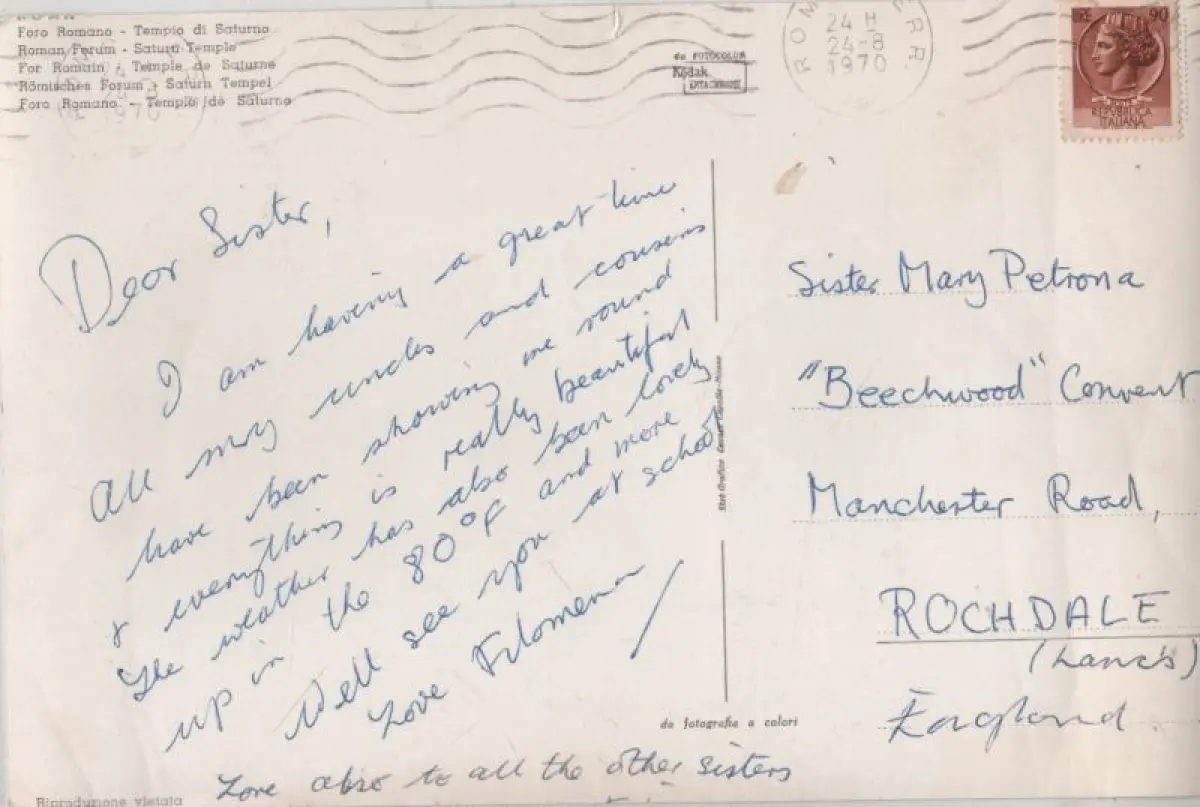 ROMA
Foro Romano - Tempio di Saturno
Roman Forum - Saturn Temple
For Romain - Temple de Saturne
Römisches Forum - Saturn Tempel
Foro Romano - Templo de Saturno
da FOTOCOLOR
Kodak
EKTACHROME
24 H
24-8
1970
90
REPUBBLICA
ITALIANA
Dear Sister,
I am having a great time
All my uncles and cousins
have been showing me round
& everything is really beautiful
The weather has also been lovely
up in the 80°F and more
Well see you at school
Love Filomena
Love also to all the other sisters
Sister Mary Petrona
"Beechwood" Convent
Manchester Road,
ROCHDALE
(Lancs)
England.
da fotografia a colori
Riproduzione vietata